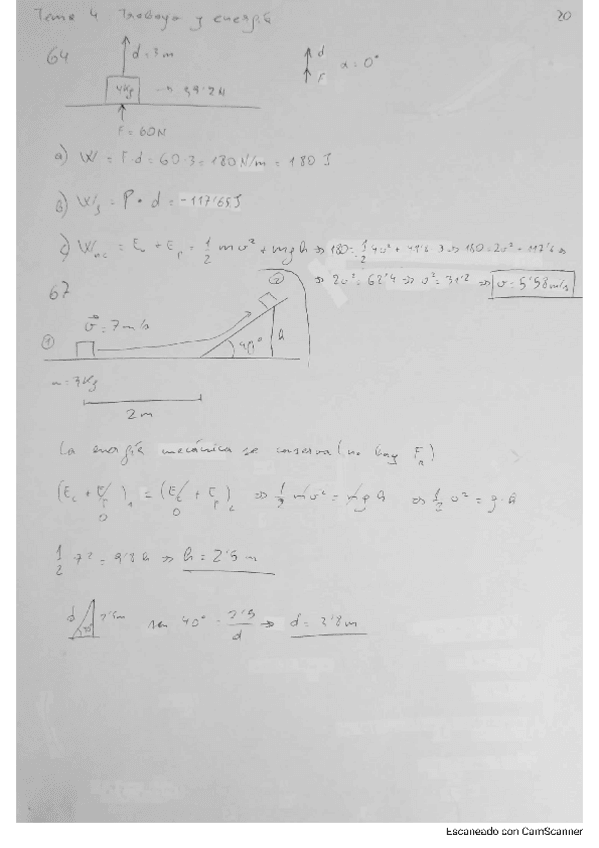 Tema 4 Trabajo y energía
20
64
d = 3 m
4Kg → 39'2N
F = 60N
d
F
α = 0°
a) W = F·d = 60·3 = 180 N/m = 180 J
b) = P · d = -117'6 J
c) = Ec + Ep = 1/2 mv² + mgh ⇒ 180 = 1/2 4v² + ⇒ 180 = 2v² + 117'6 ⇒
⇒ 2v² = 62'4 ⇒ v² = 31'2 ⇒ v = 5'58m/s
67
②
①
v = 7 m/s
40°
h
m = 3Kg
2 m
La energía mecánica se conserva (no hay )
(Ec + Ep)₁ = (Ec + Ep)₂ ⇒ 1/2 mv² = mgh ⇒ 1/2 v² = g·h
0 0
1/2 7² = 9'8 h ⇒ h = 2'5 m
d 2'5m
sen 40° = 2'5/d ⇒ d = 3'8 m
Escaneado con CamScanner